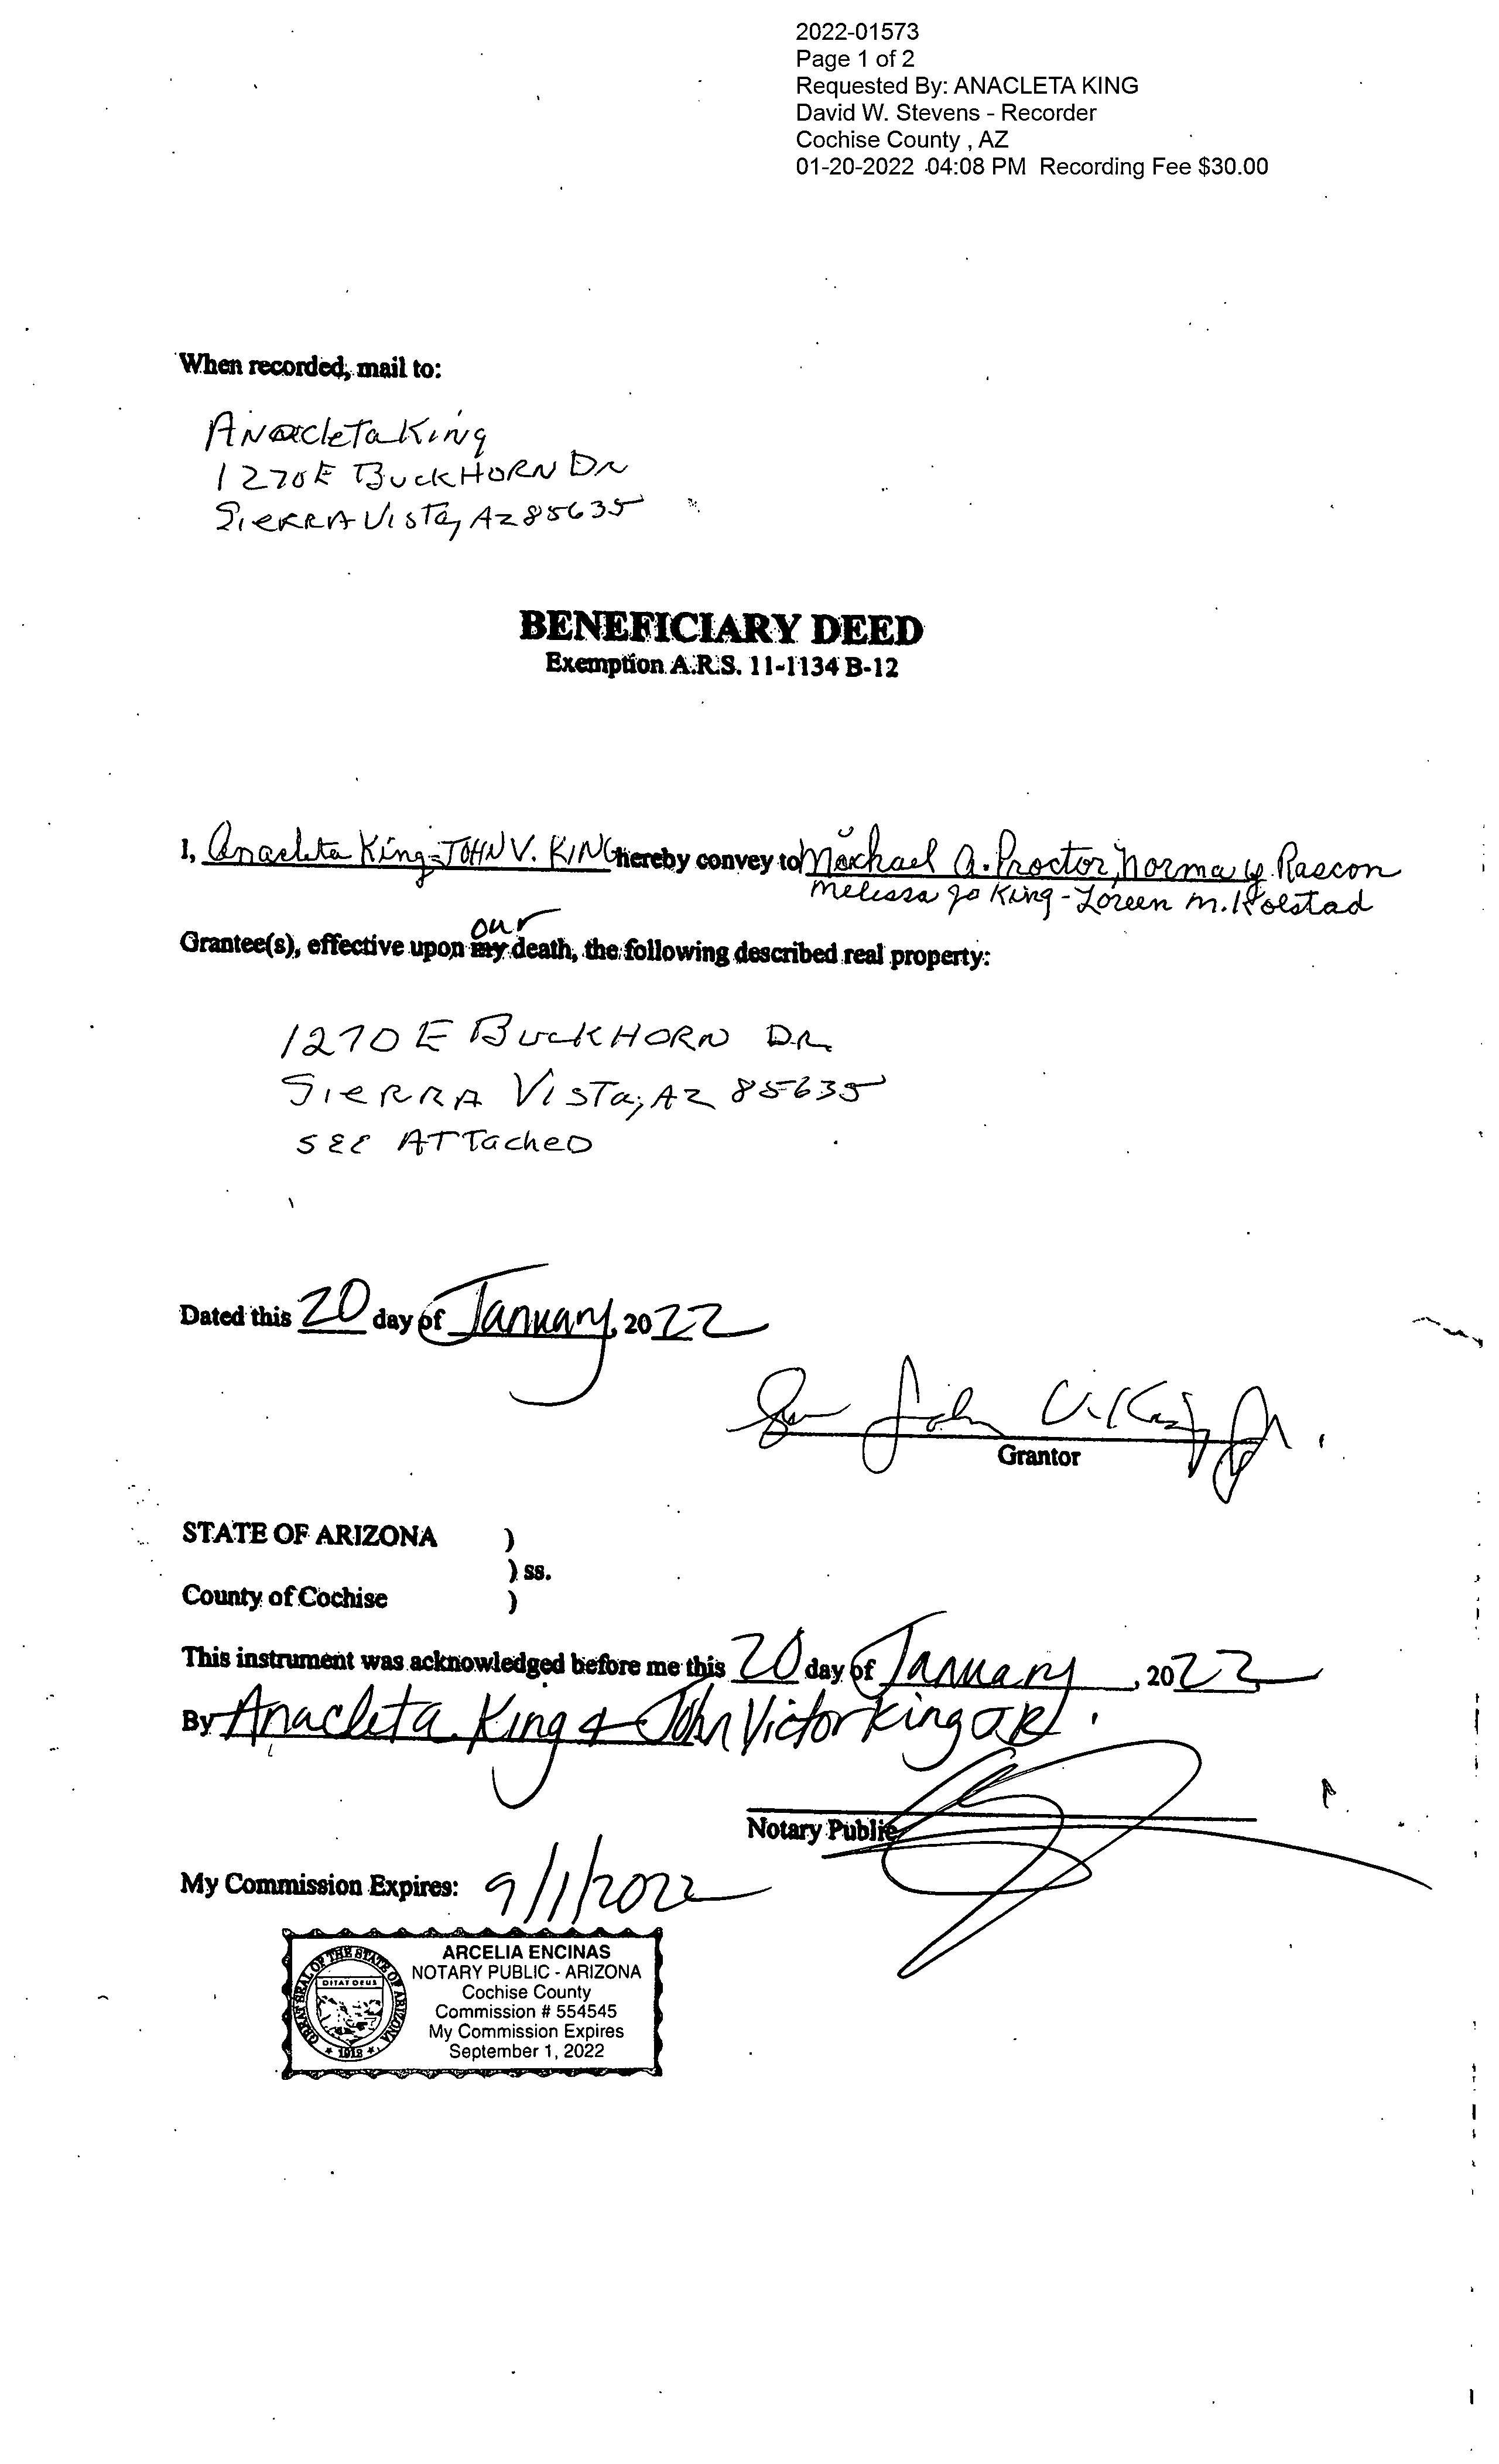 2022-01573
Page 1 of 2
Requested By: ANACLETA KING
David W. Stevens - Recorder
Cochise County , AZ
01-20-2022 04:08 PM Recording Fee $30.00
When recorded, mail to:
Anacleta King
1270 E BuckHORN DR
SIERRA VISTa, AZ 85635
BENEFICIARY DEED
Exemption A.R.S. 11-1134 B-12
I, Anacleta King-JOHN V. KING hereby convey to Michael A. Proctor, Norma Y. Rascon
Melissa Jo King - Loreen M. Kolstad
our
Grantee(s), effective upon my death, the following described real property:
1270 E BuckHORN DR
SIERRA VISTa, AZ 85635
SEE ATTacheD
Dated this 20 day of January, 2022
John V. King Jr.
Grantor
STATE OF ARIZONA )
) ss.
County of Cochise )
This instrument was acknowledged before me this 20 day of January, 2022
By Anacleta King & John Victor King JR.
Notary Public
My Commission Expires: 9/1/2022
ARCELIA ENCINAS
NOTARY PUBLIC - ARIZONA
Cochise County
Commission # 554545
My Commission Expires
September 1, 2022
GREAT SEAL OF THE STATE OF ARIZONA
DITAT DEUS
1912